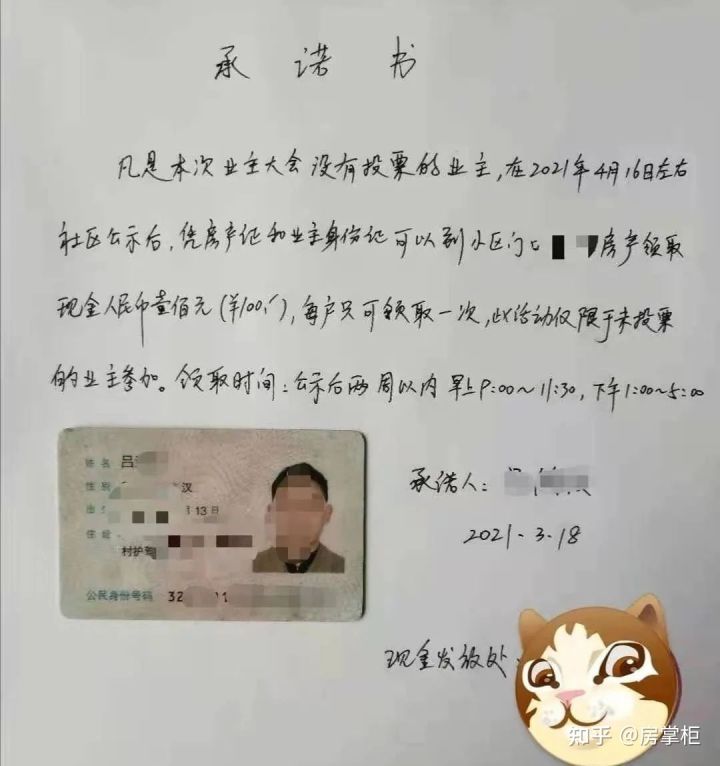 承诺书
凡是本次业主大会没有投票的业主,在2021年4月16日左右
社区公示后,凭房产证和业主身份证可以到小区门口房产领取
现金人民币壹佰元(¥100.-),每户只可领取一次,此活动仅限于未投票
的业主参加。领取时间:公示后两周以内 早上9:00~11:30,下午1:00~5:00
姓名 吕
性别 汉
出 月13日
住址
村护
公民身份号码 32
承诺人:
2021.3.18
现金发放处:
知乎 @房掌柜